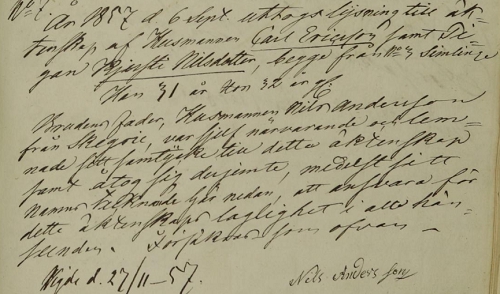 No 1. År 1857 d 6 Sept. uttogs lysning till äk-
tenskap af Husmannen Carl Ericson samt Pi-
gan Kjersti Nilsdotter, begge från No 3 Simlinge
Han 31 år Hon 32 år gl
Brudens fader, Husmannen Nils Andersson
från Skegrie, var sjelf närvarande och lem-
nade sitt samtycke till detta äktenskap
samt åtog sig derjemte, medelst sitt
namns tecknande här nedan, att ansvara för
dette äktenskaps laglighet i alla hän-
seenden. Försäkras som ofvan
Wigde d. 27/11 - 57.
Nels Andersson